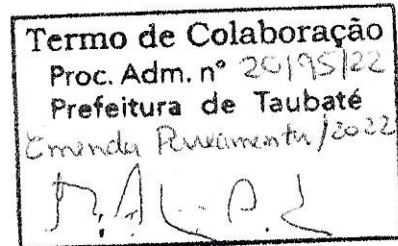 Termo de Colaboração
Proc. Adm. nº 20195/22
Prefeitura de Taubaté
Emenda /2022